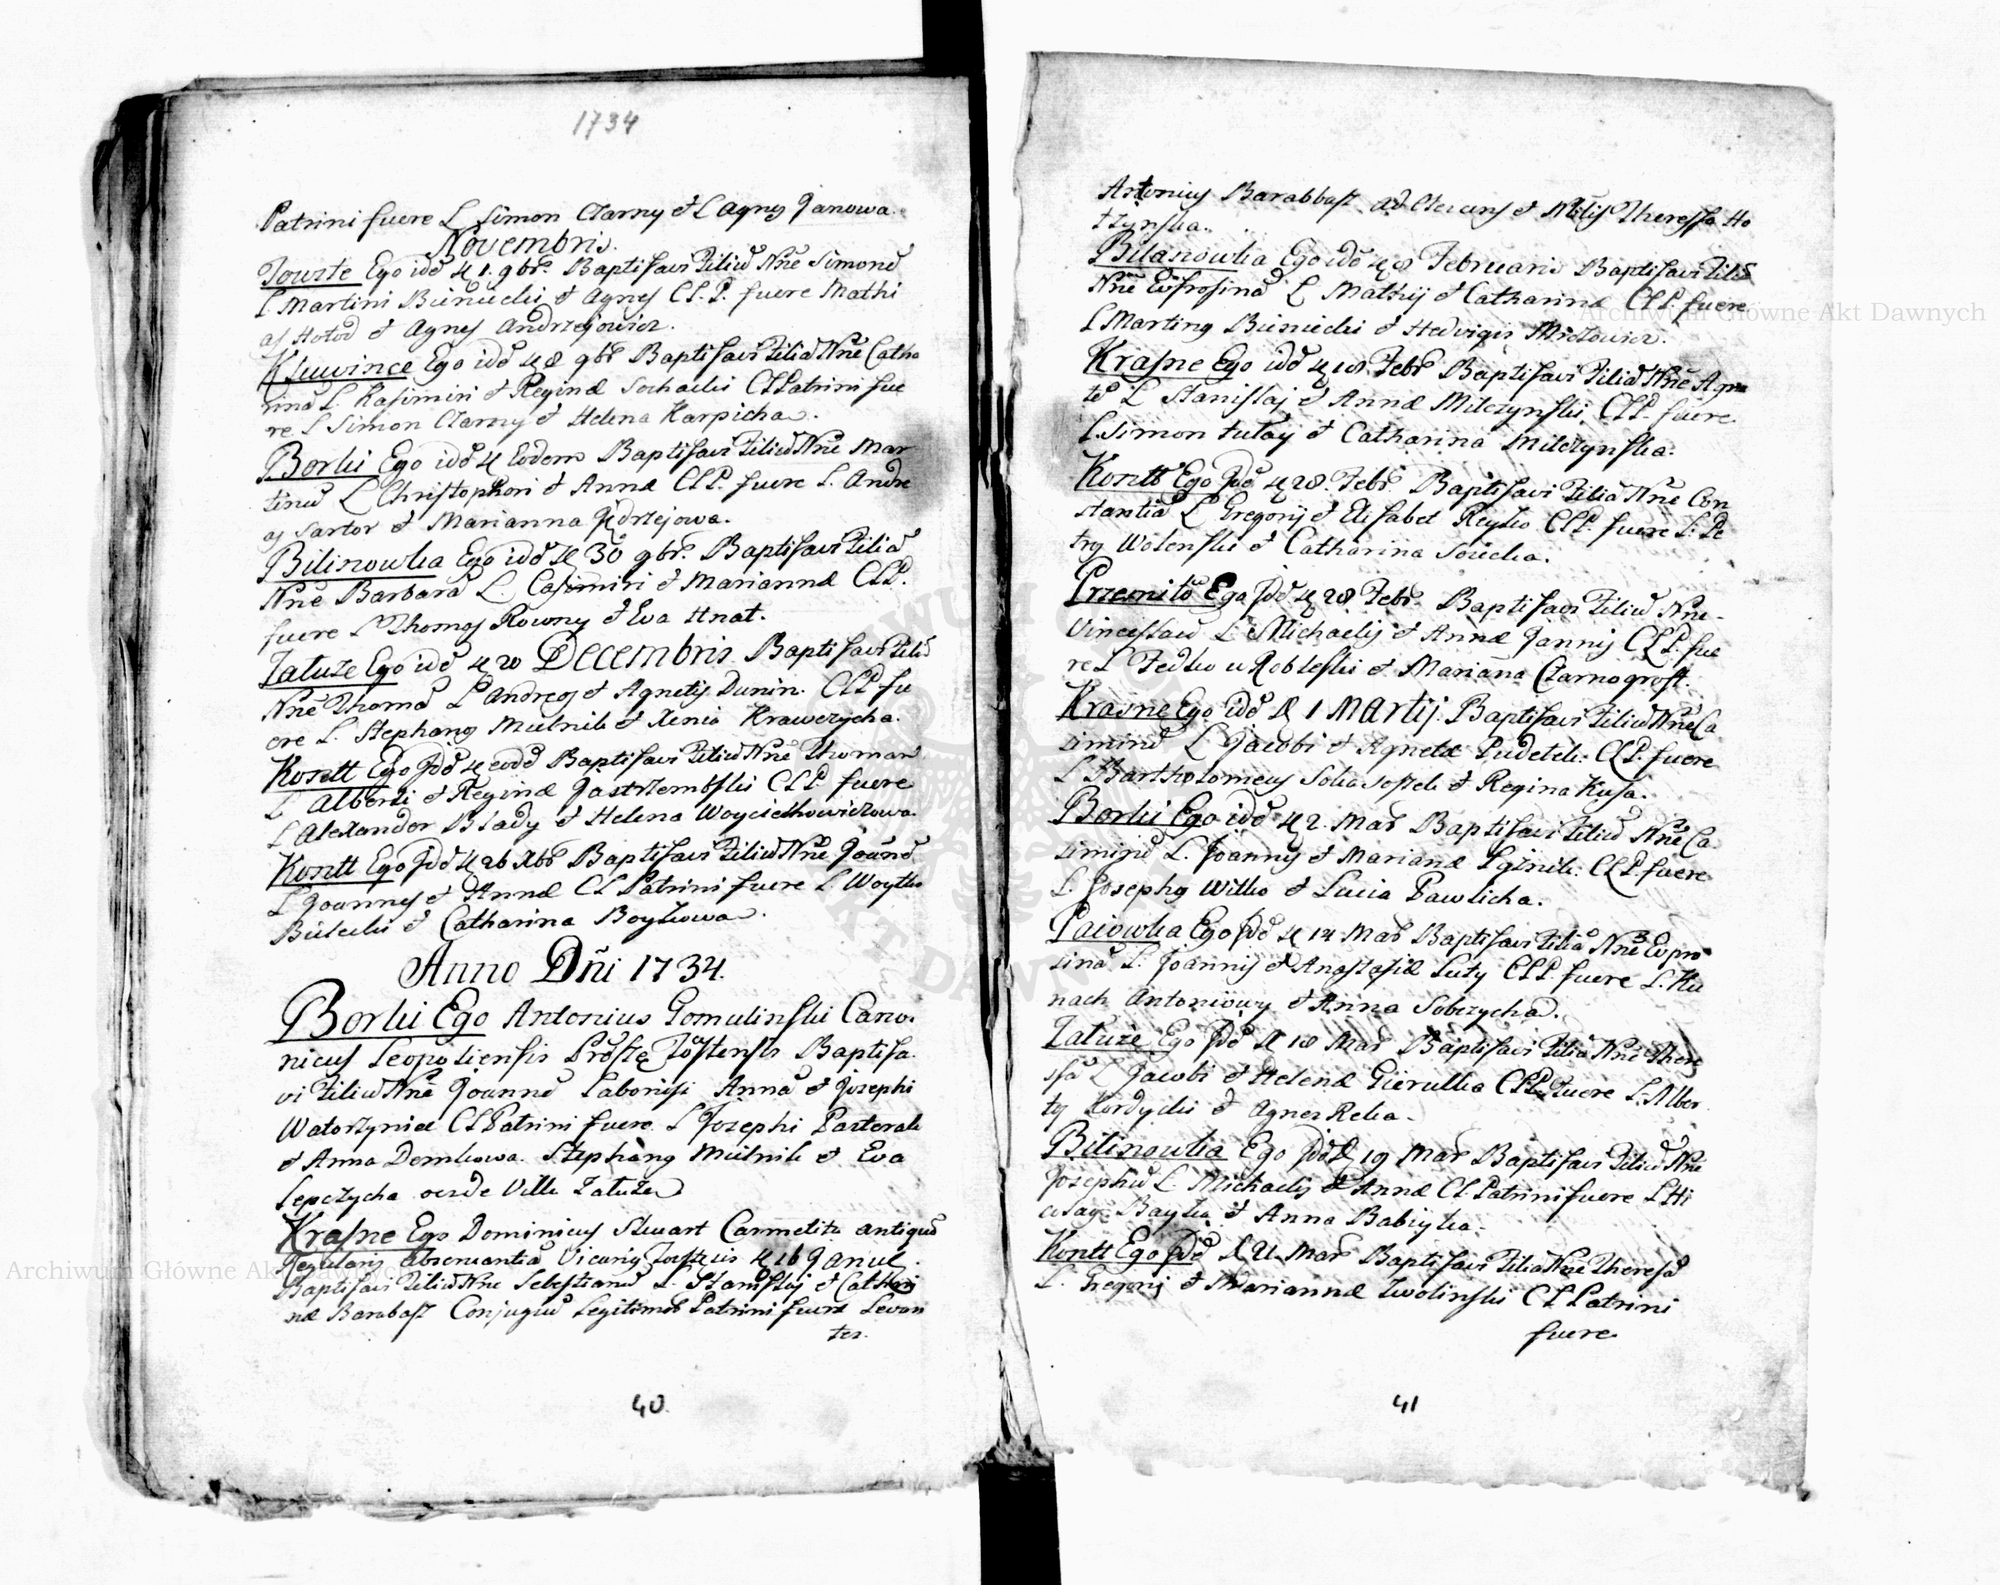 1734
Patrini fuere L Simon Czarny et L Agnes Janowa.
Novembris.
Touste Ego idē 1. 9bris Baptisavi Filiū Nne Simonē
L Martini Bieniecki et Agnes CL. P. fuere Mathi
as Hotod et Agnes Andrzejowicz.
Kluvince Ego idē 8 9br Baptisavi Filiā Nne Catha
rinā L. Kasimiri et Reginæ Sochacki CLPatrini fue
re L Simon Czarny et Helena Karpicha.
Borki Ego idē Eodem Baptisavi Filiū Nne Mar
tinū L Christophori et Annæ CLP. fuere L. Andre
as Sartor et Marianna Jędrzejowa.
Bilinowka Ego idē 30 9br. Baptisavi Filiā
Nne Barbarā L. Casimiri et Mariannæ CLP.
fuere L Thomas Rowny et Eva Hnat.
Zaluze Ego idē 20 Decembris Baptisavi Filiū
Nne Thomā L Andreæ et Agnetis Dunin. CLP fu
ere L. Stephang Mielnik et Xenia Krawczycha.
Kozett Ego Jdē eodē Baptisavi Filiū Nne Thomam
L Alberti et Reginæ Jastrzembski CLP. fuere
L Alexander Blady et Helena Woyciechowiczowa.
Kontt Ego Jdē 26 Xbr Baptisavi Filiū Nne Joānē
L Joannes et Annæ CL Patrini fuere L Woytko
Bielecki et Catharina Boytkowa.
Anno Dñi 1734.
Borki Ego Antonius Gomulinski Cano.
nicus Leopoliensis Baptisa.
vi Filiū Nne Joannē Laboriosi Anna et Josephi
CLPatrini fuere L Josephi Pasterak
et Anna Dembowa. Stephang Mielnik et Eva
Lepczycha de Villa Zaluze
Krasne Ego Dominicus Stuart Carmelita antiquæ
Regularis observantiæ Vicarig 16 Januæ.
Baptisavi Filiū Nne Sebestianū L. Stanislai et Cathari
næ Barabasz Conjugum Legitimor Patrini fuere Levan
tes.
40.
Antonius Barabbasz et Nblis Theressa Ho
Bilanowka Ego idē 8 Februarii Baptisavi Filiā
Nne Eufrosinā L Mathij et Catharinæ CLP. fuere
L Marting Bieniecki et Hedvigis Michowicz.
Krasne Ego idē 18 Febr Baptisavi Filiā Nne Agne
tē L Stanislaj et Annæ Milczynski CLP. fuere.
L. Simon Tutay et Catharina Milczynska.
Kontt Ego Jdē 28. Febr. Baptisavi Filiā Nne Con
stantiā L Gregorij et Elisabet Reyko CLP. fuere L. Pe
try Wolenski et Catharina Sowicka.
Przemilo Ego Jdē 28 Febr. Baptisavi Filiū Nne
Vinceslaū L Michaelis et Annæ Jannij CLP. fue
re L Fedko Wrobleski et Mariana Czarnogroff.
Krasne Ego idē 1 Martij Baptisavi Filiū Nne Ca
simirū L Jacobi et Agnetæ Pudetek. CLP. fuere
L Bartholomeus et Regina Kusa.
Borki Ego idē 2. Mar Baptisavi Filiū Nne Ca
simirū L. Joannis et Marianæ CLP. fuere
L. Josephg Witko et Lucia Pawlicha.
Paiowka Ego Jdē 14 Mar Baptisavi Filiā Nne Evpro
sinā L. Joannis et Anastasiæ Luty CLP. fuere L. Ku
nach Antoniowy et Anna Sobczycha.
Zaluze Ego Jdē 18 Mar Baptisavi Filiā Nne There
ssā L Jacobi et Helenæ Gierulka CLP. fuere L. Alber
tg Kordycki et Agnes Reka.
Bilinowka Ego Jdē 19 Mar Baptisavi Filiū Nne
Josephū L. Michaelis et Annæ CL Patrini fuere L Hi
Bayka et Anna Babiyka.
Kontt Ego Jdē 21. Mar Baptisavi Filiā Nne Theresā
L. Gregorij et Mariannæ Zwolinski CL Patrini
fuere
41
Archiwum Główne Akt Dawnych
Archiwum Główne Akt Dawnych